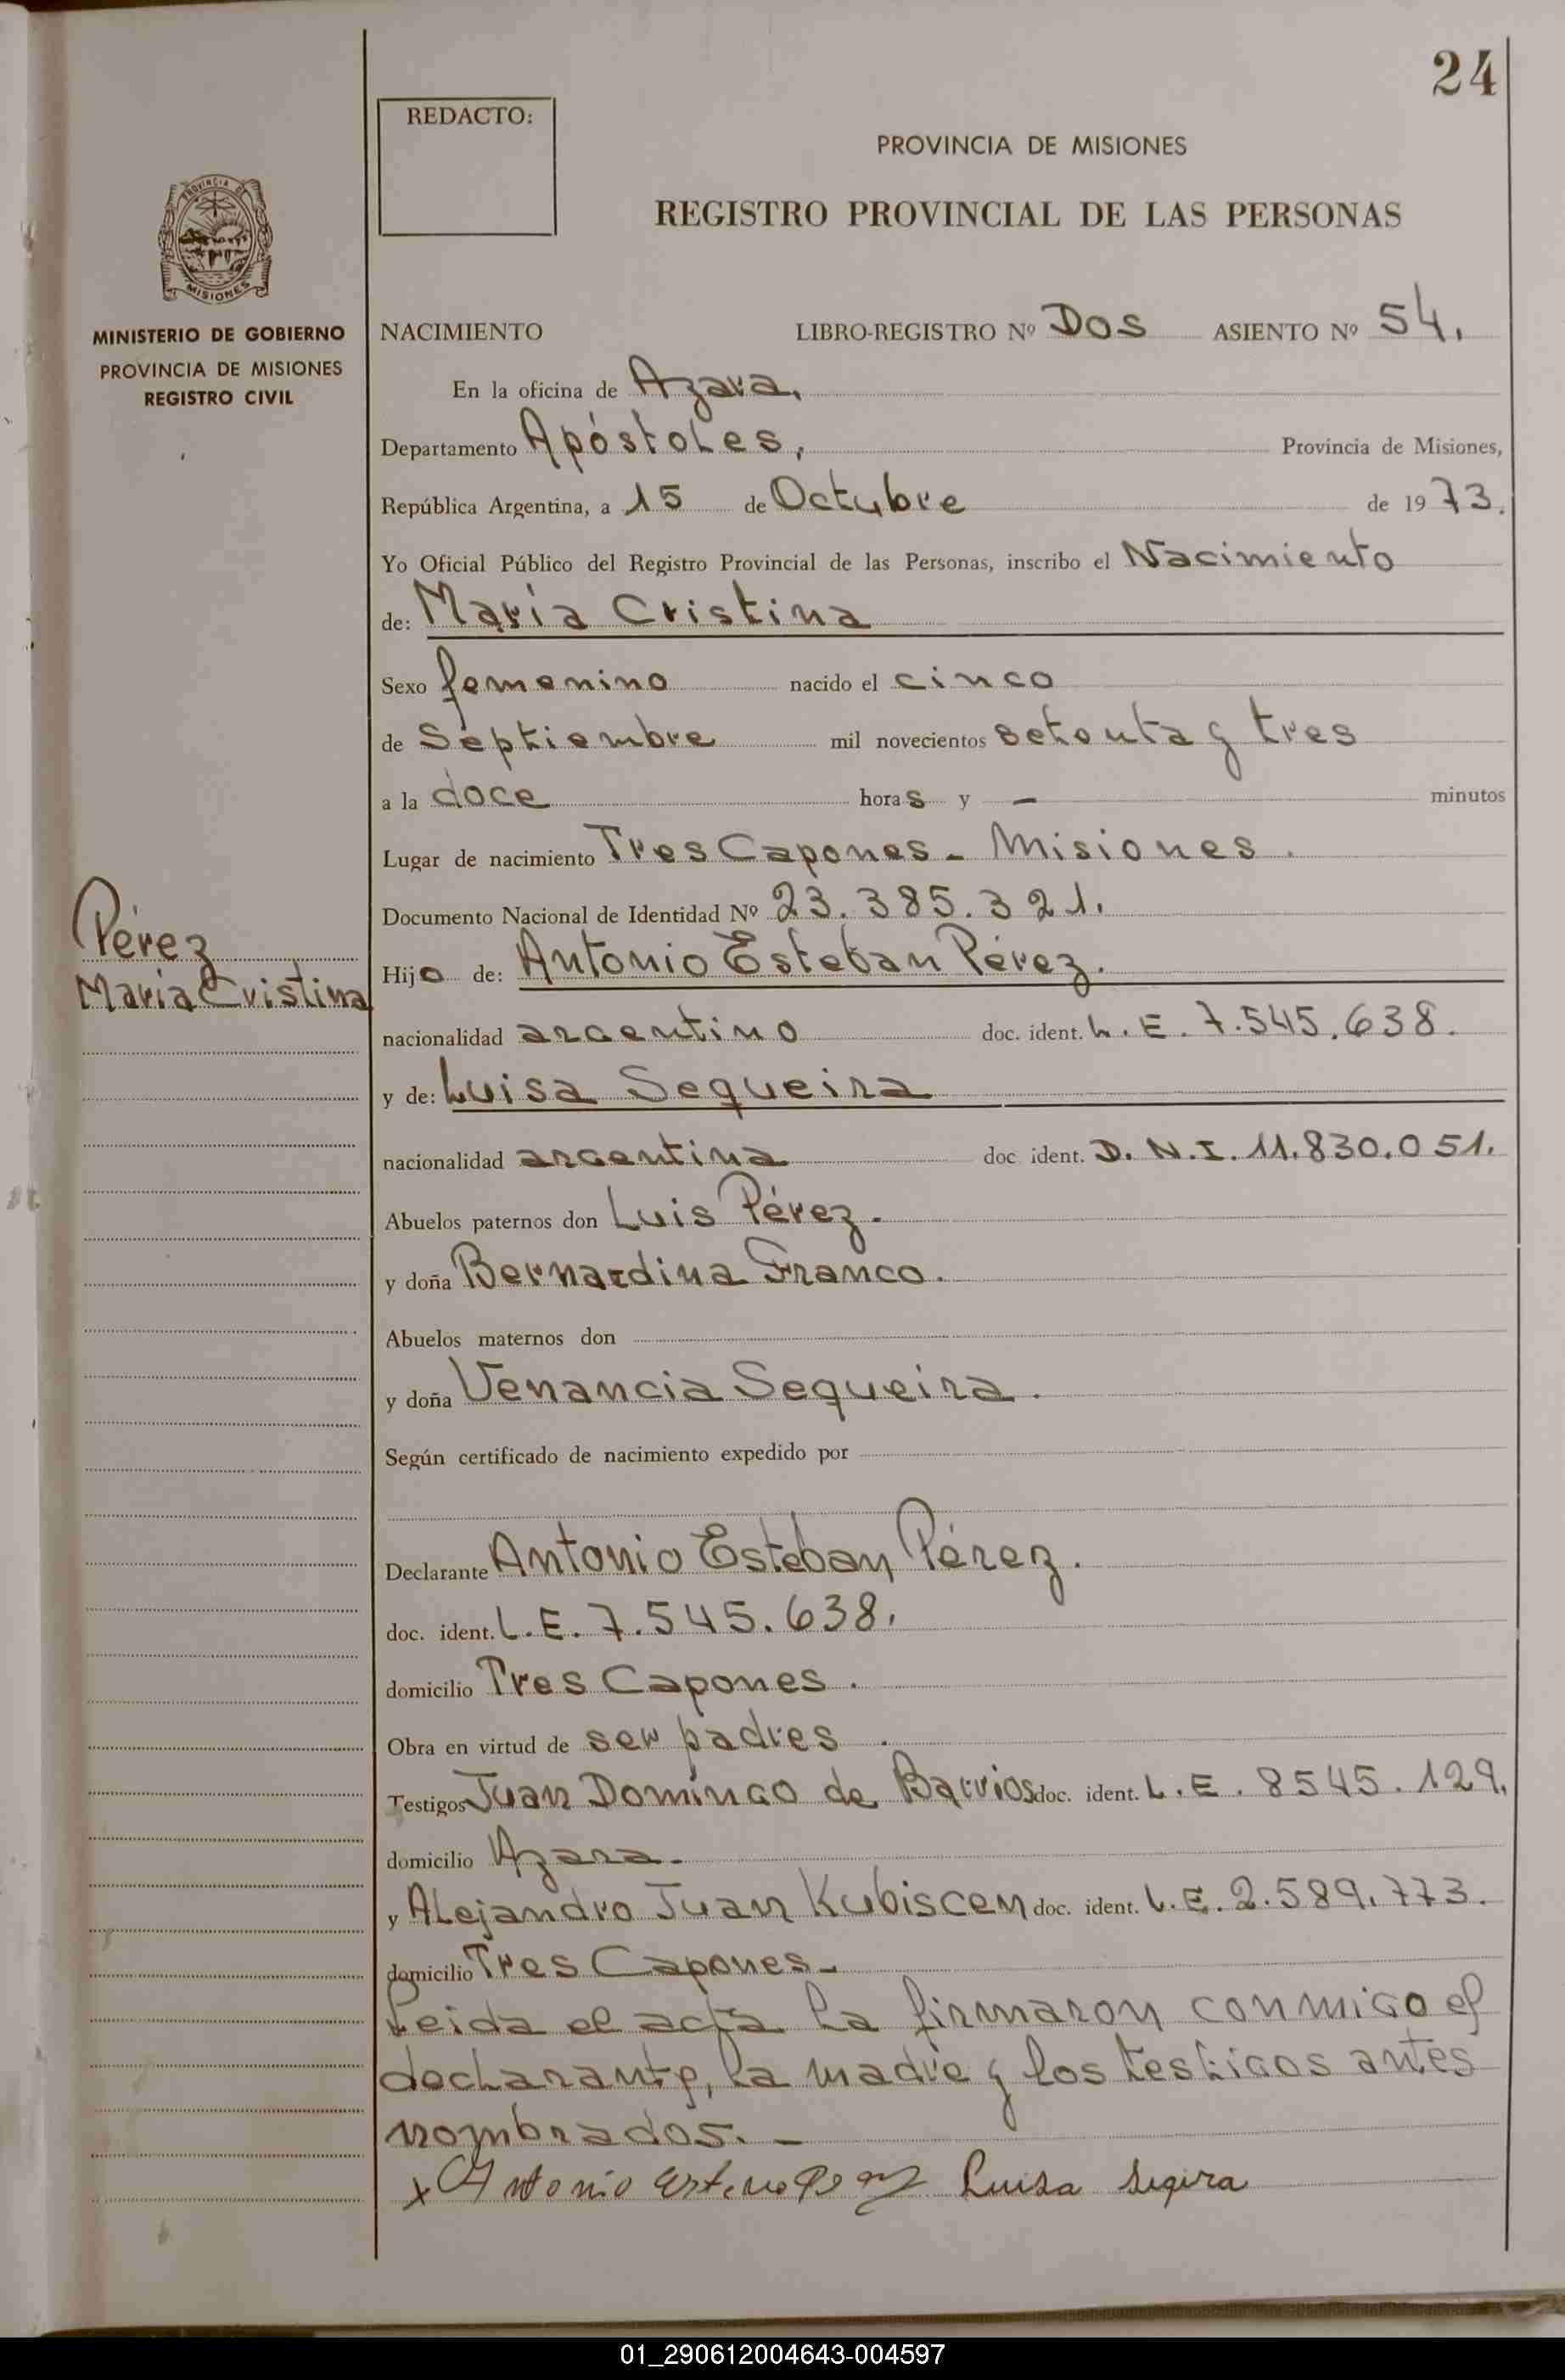 24
REDACTO:
PROVINCIA DE MISIONES
REGISTRO PROVINCIAL DE LAS PERSONAS
PROVINCIA DE
MISIONES
MINISTERIO DE GOBIERNO
PROVINCIA DE MISIONES
REGISTRO CIVIL
NACIMIENTO LIBRO-REGISTRO Nº Dos ASIENTO Nº 54.
En la oficina de Azara,
Departamento Apóstoles, Provincia de Misiones,
República Argentina, a 15 de Octubre de 1973.
Yo Oficial Público del Registro Provincial de las Personas, inscribo el Nacimiento
de: María Cristina
Sexo femenino nacido el cinco
de Septiembre mil novecientos setenta y tres
a la doce horas y — minutos
Lugar de nacimiento Tres Capones - Misiones.
Documento Nacional de Identidad Nº 23.385.321.
Pérez
María Cristina
Hijo de: Antonio Esteban Pérez.
nacionalidad argentino doc. ident. L.E. 7.545.638.
y de: Luisa Sequeira
nacionalidad argentina doc ident. D.N.I. 11.830.051.
Abuelos paternos don Luis Pérez.
y doña Bernardina Franco.
Abuelos maternos don
y doña Venancia Sequeira.
Según certificado de nacimiento expedido por
Declarante Antonio Esteban Pérez.
doc. ident. L.E. 7.545.638.
domicilio Tres Capones.
Obra en virtud de ser padres.
Testigos Juan Domingo de Barrios doc. ident. L.E. 8545.129.
domicilio Azara.
y Alejandro Juan Kubiscen doc. ident. L.E. 2.589.773.
domicilio Tres Capones.-
Leida el acta la firmaron conmigo el
declarante, la madre y los testigos antes
nombrados. -
x Antonio Luisa Seqira
01_290612004643-004597